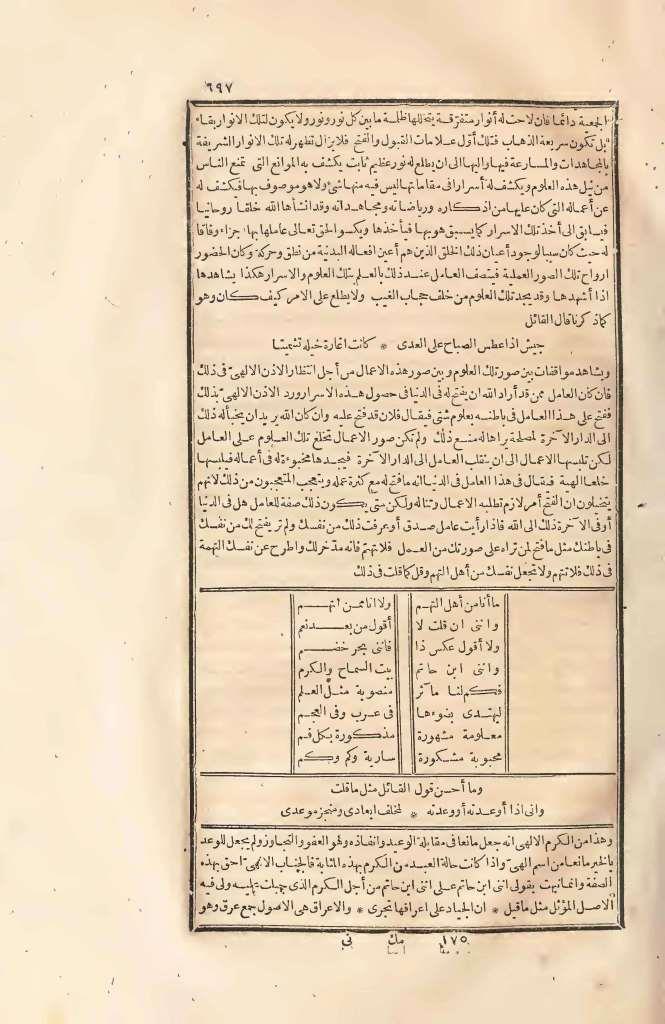 ٦٩٧
الجمعة دائما فان لاحت له أنوار متفرقة يتخللها ظلمة ما بين كل نور ونور ولا يكون لتلك الانوار بقاء
بل تكون سريعة الذهاب فتلك أوّل علامات القبول والفتح فلا يزال تظهر له تلك الانوار الشريفة
بالمجاهدات والمسارعة فيها واليها الى ان يطلع له نور عظيم ثابت يكشف به الموانع التى تمنع الناس
من نيل هذه العلوم ويكشف له أسرارا فى مقاماتها ليس فيه منها شئ ولا هو موصوف بها فيكشف له
عن أعماله التى كان عليها من اذكاره ورياضاته ومجاهداته وقد أنشأها الله خلقا روحانيا
فيسابق الى أخذ تلك الاسرار كما يسبق هو بها فيأخذها ويكسو الحق تعالى عاملها بها جزاء وفاقا
له حيث كان سببا لوجود أعيان ذلك الخلق الذين هم أعين افعاله البدنية من نطق وحركة وكان الحضور
ارواح تلك الصور العملية فيتصف العامل عند ذلك بالعلم بتلك العلوم والاسرار هكذا يشاهدها
اذا أشهدها وقد يجد تلك العلوم من خلف حجاب الغيب ولا يطلع على الامر كيف كان وهو
كما ذكرنا قال القائل
جيش اذا عطس الصباح على العدى * كانت اغارة خيله تشميتا
ويشاهد مواقفات بين صور تلك العلوم وبين صور هذه الاعمال من أجل انتظار الاذن الالهىّ فى ذلك
فان كان العامل ممن قد أراد الله ان يفتح له فى الدنيا فى حصول هذه الاسرار ورد الاذن الالهىّ بذلك
ففتح على هذا العامل فى باطنه بعلوم شتى فيقال فلان قد فتح عليه وان كان الله يريد ان يخبأ له ذلك
الى الدار الآخرة لمصلحة يراها له منع ذلك ولم تكن صور الاعمال تخلع تلك العلوم على العامل
لكن تلبسها الاعمال الى ان ينقلب العامل الى الدار الآخرة فيجدها مخبوءة له فى أعماله فيلبسها
خلعا الهية فيقال فى هذا العامل فى الدنيا انه ما فتح له مع كثرة عمله ويتعجب المتعجبون من ذلك لانهم
يتخيلون ان الفتح أمر لازم تطلبه الاعمال وتناله ولكن متى يكون ذلك صفة للعامل هل فى الدنيا
أو فى الآخرة ذلك الى الله فاذا رأيت عامل صدق أو عرفت ذلك من نفسك ولم تر يفتح لك من نفسك
فى باطنك مثل ما فتح لمن تراه على صورتك من العمل فلا تتهم فانه مدّخر لك واطرح عن نفسك التهمة
فى ذلك فلا تتهم ولا تجعل نفسك من أهل التهم وقل كما قلت فى ذلك
ما أنا من أهل التهم ولا انا ممن اتهم
واننى ان قلت لا أقول من بعد نعم
ولا أقول عكس ذا فاننى بحر خضم
واننى ابن حاتم بيت السماح والكرم
فكم لنا مآثر منصوبة مثل العلم
ليهتدى بضوءها فى عرب وفى العجم
معلومة مشهورة مذكورة بكل فم
محبوبة مشكورة سارية وكم وكم
وما أحسن قول القائل مثل ما قلت
وانى اذا أوعدته أو وعدته * لمخلف ايعادى ومنجز موعدى
وهذا من الكرم الالهى انه جعل مانعا فى مقابلة الوعيد وانفاذه وهو العفو والتجاوز ولم يجعل للوعد
بالخير مانعا من اسم الهىّ واذا كانت حالة العبد من الكرم بهذه المثابة فالجناب الالهىّ احق بهذه
الصفة وانما نبهت بقولى اننى ابن حاتم على اننى ابن حاتم من أجل الكرم الذى جبلت عليه ولى فيه
الاصل المؤثل مثل ما قيل * ان الجياد على اعراقها تجرى * والاعراق هى الاصول جمع عرق وهو
١٧٥ مك نى